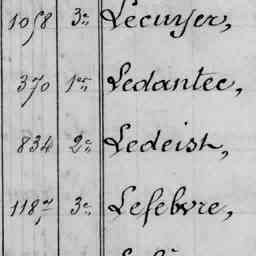 1058 3e Lecuyer,
370 1er Ledantec,
834 2e Ledeist,
1187 3e Lefebvre,